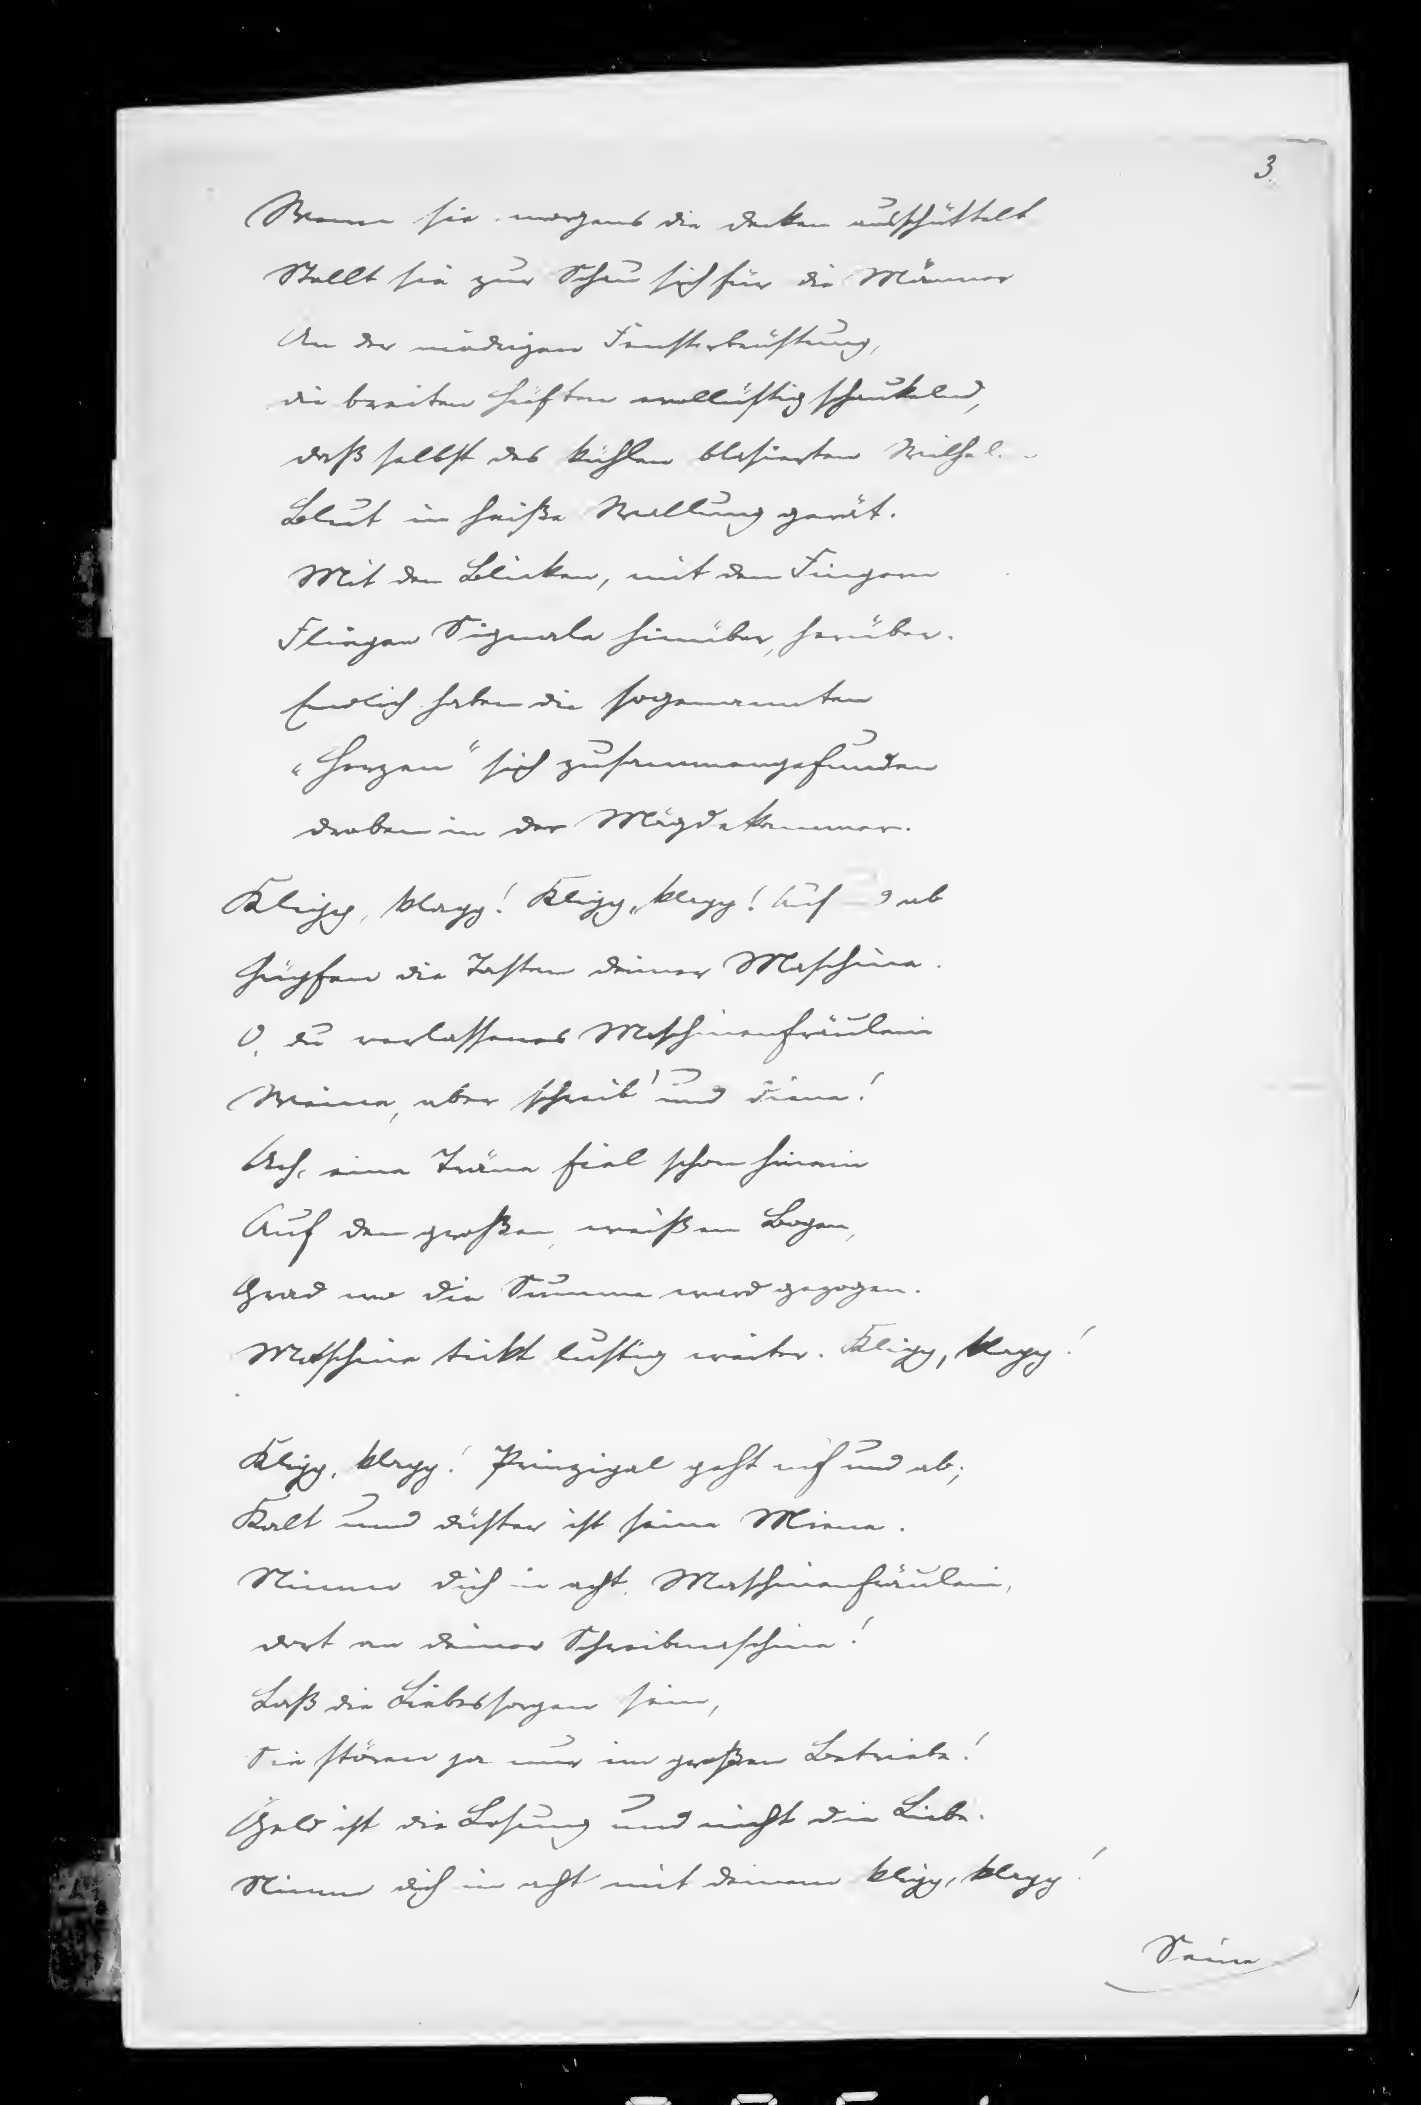 3.
Wenn sie morgens die decken ausschüttelt
Stellt sie zur Schau sich für die Männer
An der niedrigen Fensterbrüstung,
die breiten Hüften wollüstig schaukelnd,
daß selbst des kühlen blasierten
Blut in heiße Wallung gerät.
Mit den Blicken, mit den Fingern
Fliegen Signale hinüber, herüber.
Endlich haben die sogenannten
„Herzen“ sich zusammengefunden
droben in der Mägdekammer.
Klipp, klapp! Klipp, klapp! Auf ab
Hüpfen die Tasten deiner Maschine.
O, du verlassenes Maschinenfräulein
Weine, aber schreib' und diene!
Ach, eine Träne fiel schon hinein
Auf den großen, weißen Bogen,
Grad wo die Summe ward gezogen.
Maschine tickt lustig weiter. Klipp, klapp!
Klipp, klapp! Prinzipal geht auf und ab;
Kalt und düster ist seine Miene.
Nimm dich in acht, Maschinenfräulein,
dort an deiner Schreibmaschine!
Laß die Liebessorgen sein,
Sie stören ja nur im großen Betriebe!
Geld ist die Losung und nicht die Liebe.
Nimm dich in acht mit deinem klipp, klapp!
Seine